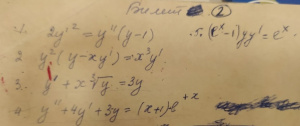 Билет ②
1. 2y'² = y''(y-1)
5. (eˣ-1)yy' = eˣ.
2. y²(y-xy') = x³y'
3. y' + x∛y = 3y
4. y'' + 4y' + 3y = (x+1)e⁺ˣ